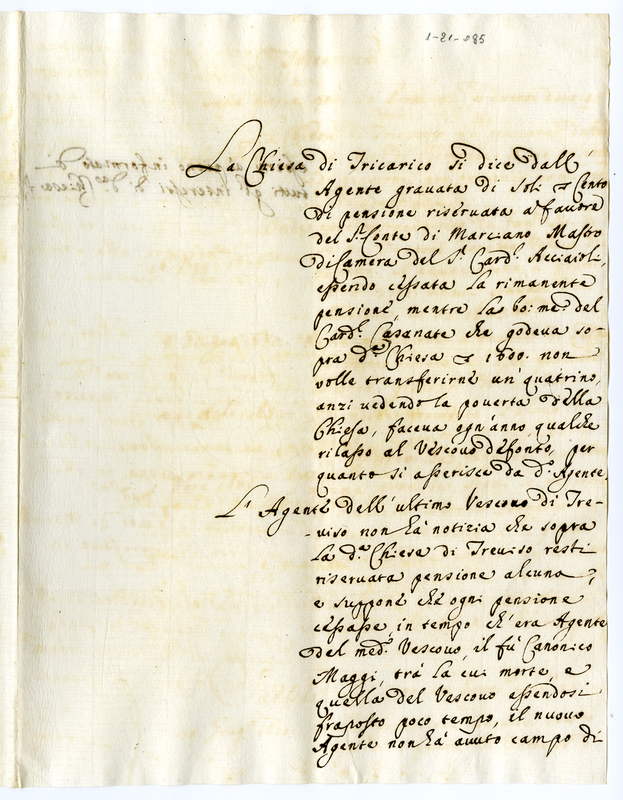 1-21-085
La Chiesa di Tricarico si dice dall'
Agente grauata di soli Cento
di pensione riseruata a' fauore
del Sr. Conte di Marciano Mastro
di Camera del Sr. Card.l Acciaioli,
essendo cessata la rimanente
pensione, mentre la bo: me: del
Card.l Casanate che godeua so-
pra d.a Chiesa non
volle transferirne un' quatrino,
anzi uedendo la pouertà della
Chiesa, faceua ogn'anno qualche
rilasso al Vescouo defonto, per
quanto si asserisce da d.o Agente.
L' Agente dell'ultimo Vescouo di Tre-
-uiso non hà notizia che sopra
la d.a Chiesa di Treuiso resti
riseruata pensione alcuna,
e suppone che ogni pensione
cessasse, in tempo ch'era Agente
del med.o Vescouo, il fù Canonico
Maggi, trà la cui morte, e
quella del Vescouo essendosi
fraposto poco tempo, il nuouo
Agente non hà auuto campo di